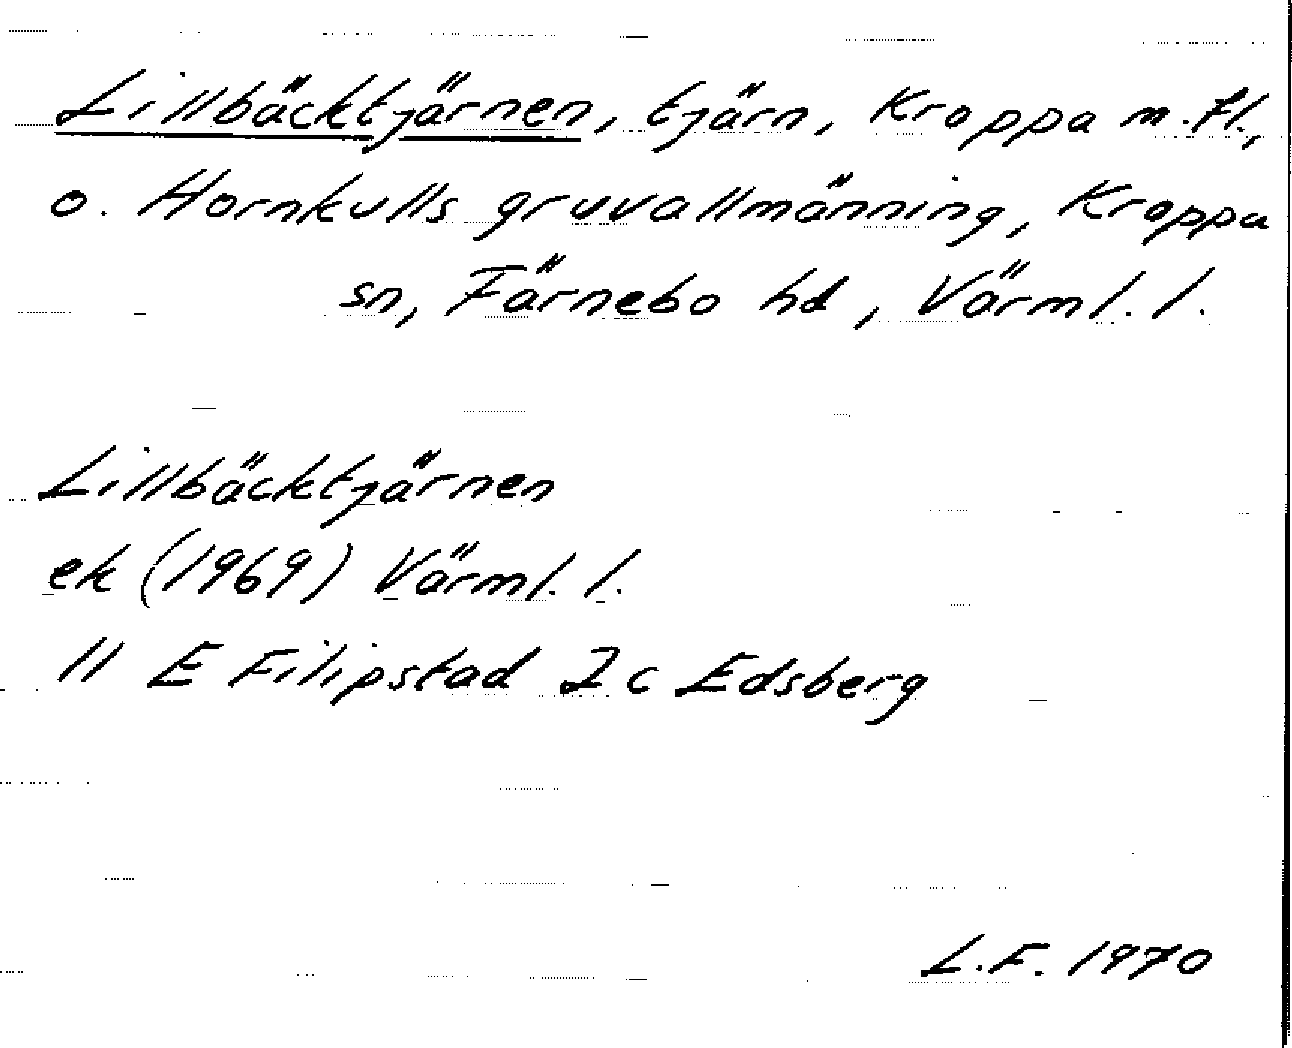 Lillbäcktjärnen, tjärn, Kroppa m.fl.,
o. Hornkulls gruvallmänning, Kroppa
sn, Färnebo hd, Värml. l.
Lillbäcktjärnen
ek (1969) Värml. l.
11 E Filipstad 2 c Edsberg
L.F. 1970